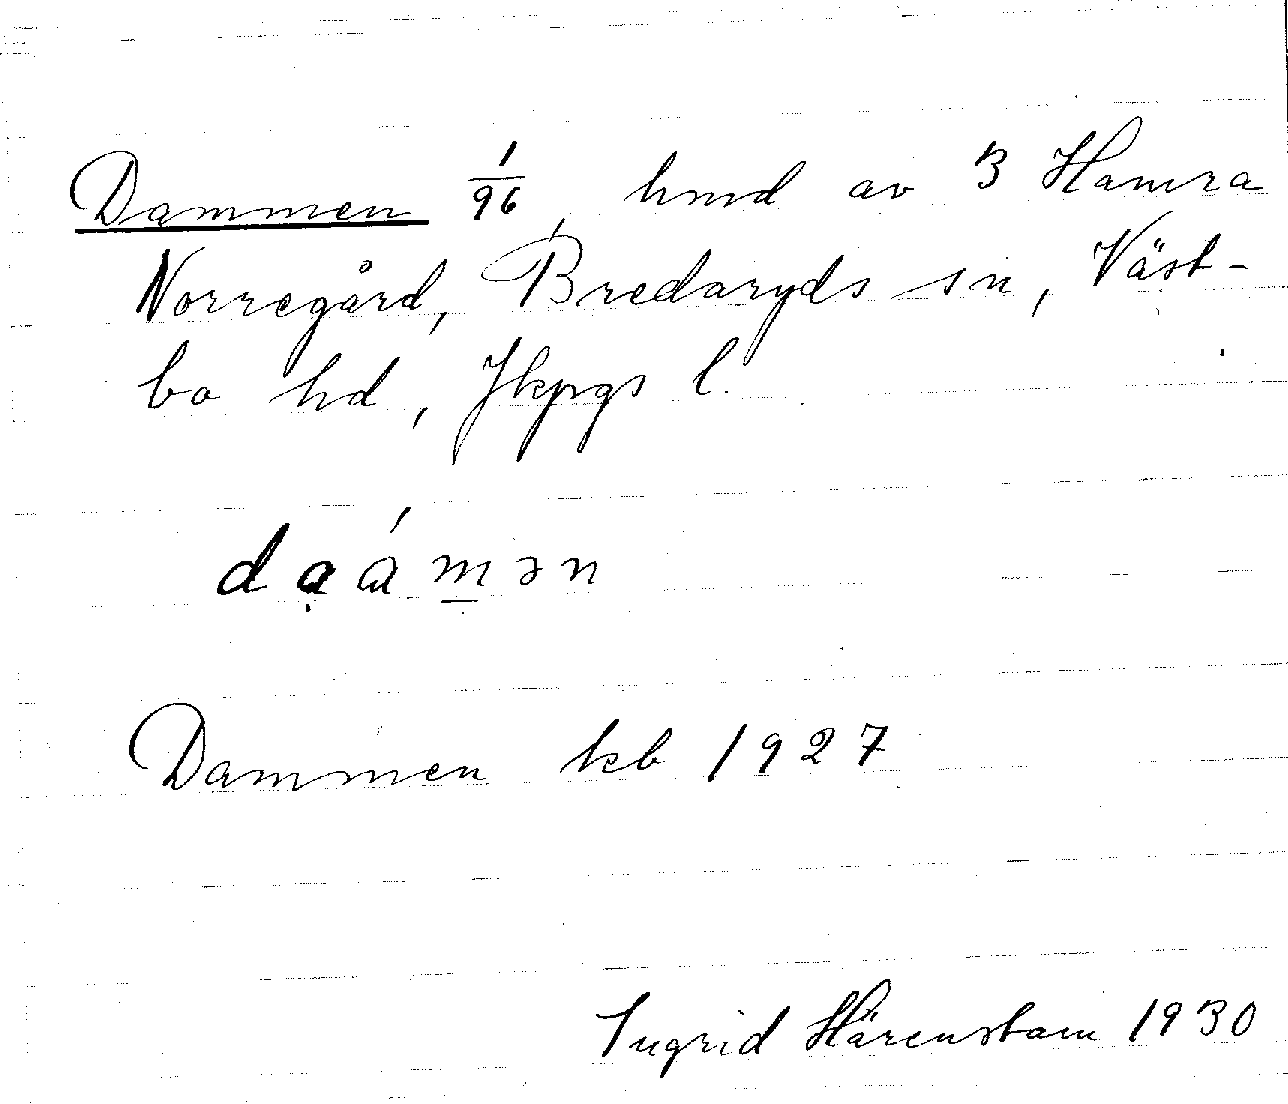 Dammen 1/96, hmd av 3 Hamra
Norregård, Bredaryds sn, Väst-
bo hd, Jkpgs l.
dạámən
Dammen kb 1927
Ingrid Härenstam 1930